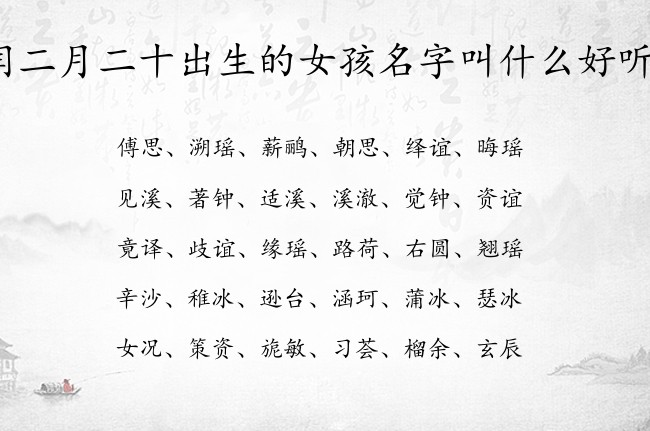 闰二月二十出生的女孩名字叫什么好听
傅思、溯瑶、薪鹂、朝思、绎谊、晦瑶
见溪、著钟、适溪、溪澈、觉钟、资谊
竟译、歧谊、缘瑶、路荷、右圆、翘瑶
辛沙、稚冰、逊台、涵珂、蒲冰、瑟冰
女况、策资、旎敏、习荟、榴余、玄辰